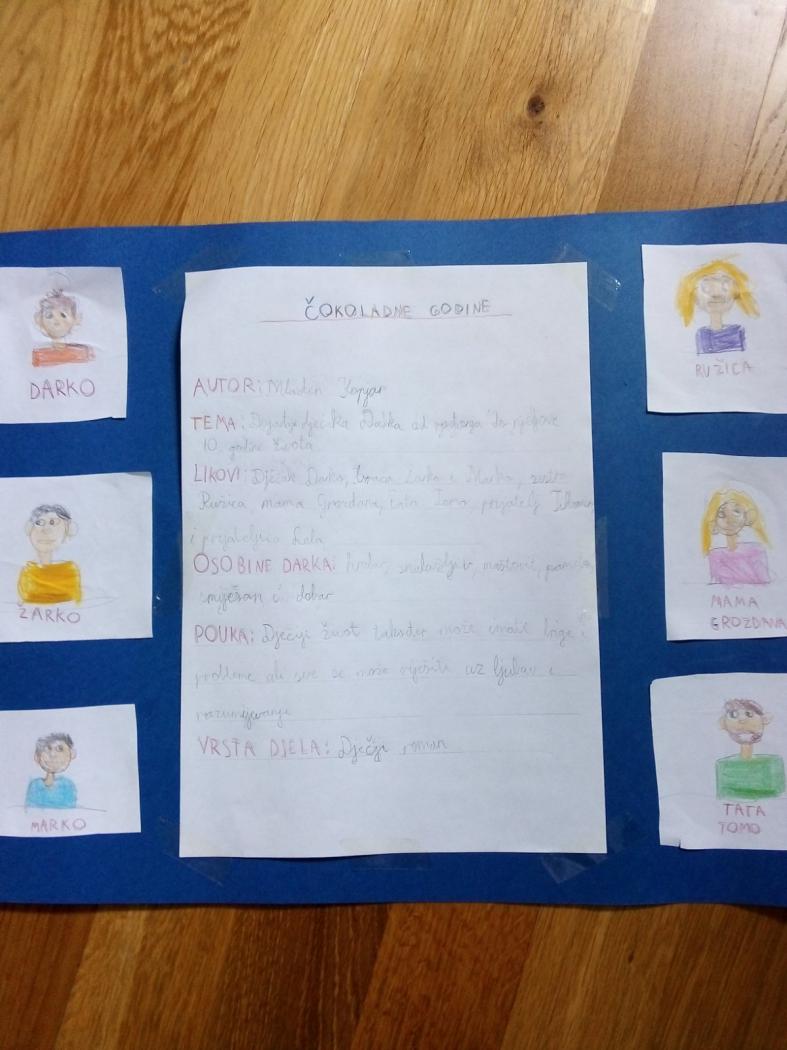 ČOKOLADNE GODINE
AUTOR: Mladen Kopjar
TEMA: Događaji dječaka Darka od rođenja do njegove
10. godine života
LIKOVI: Dječak Darko, braća Žarko i Marko, sestra
Ružica, mama Grozdana, tata Tomo, prijatelj
i prijateljica Lata
OSOBINE DARKA: hrabar, snalažljiv, maštovit, pametan
smiješan i dobar
POUKA: Dječji život također može imati brige i
probleme ali sve se može riješiti uz ljubav i
razumijevanje
VRSTA DJELA: Dječji roman
DARKO
ŽARKO
MARKO
RUŽICA
MAMA
GROZDANA
TATA
TOMO